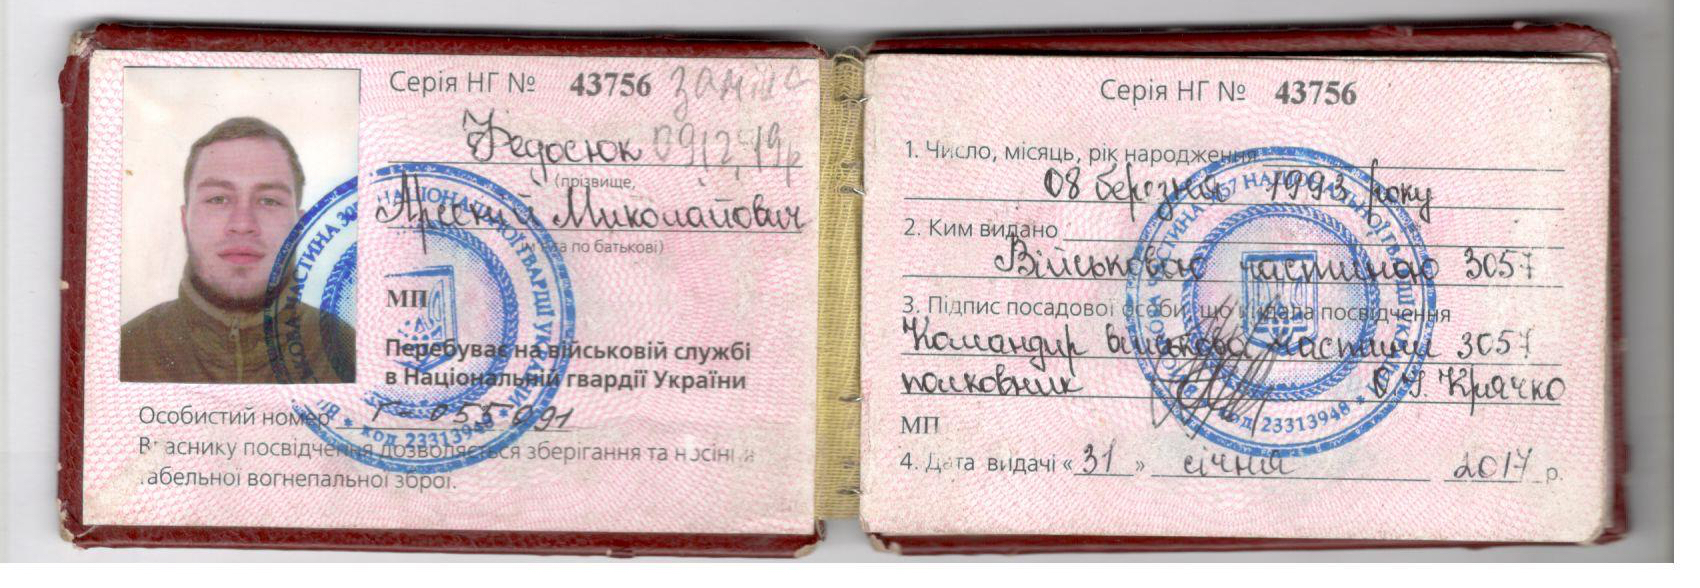 Серія НГ № 43756 заміна
Федосюк 09.12.19р
(прізвище,
Арсеній Миколайович
ім'я по батькові)
МП
Перебуває на військовій службі
в Національній гвардії України
Особистий номер Г-055091
Власнику посвідчення дозволяється зберігання та носіння
табельної вогнепальної зброї.
Серія НГ № 43756
1. Число, місяць, рік народження
08 березня 1993 року
2. Ким видано
Військовою частиною 3057
3. Підпис посадової особи, що видала посвідчення
Командир військова частини 3057
полковник Крачко
МП
4. Дата видачі « 31 » січня 2017 р.
код 23313948